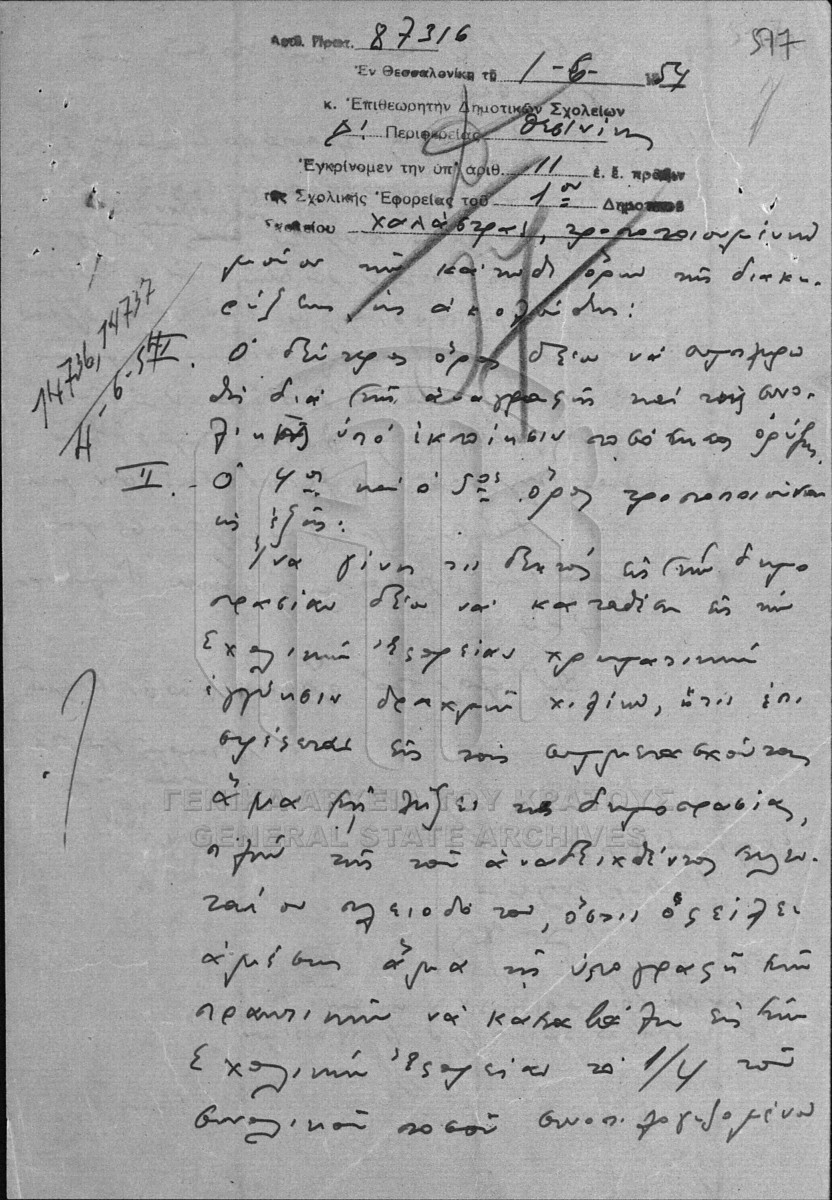 577
Αριθ. Πρωτ. 87316
Ἐν Θεσσαλονίκῃ τῇ 1-6- 1954
κ. Ἐπιθεωρητὴν Δημοτικῶν Σχολείων
Δ! Περιφερείας Θεσ/νίκης
Ἐγκρίνομεν την ὑπ' ἀριθ. 11 ἐ. ἔ. πρᾶξιν
τῆς Σχολικῆς Ἐφορείας τοῦ 1ου Δημοτικοῦ
Σχολείου Χαλάστρας, τροποποιουμένων
μόνον τῶν κάτωθι ὅρων τῆς διακη-
ρύξεως, ὡς ἀκολούθως:
14736, 14737
4-6-54
I. Ὁ δεύτερος ὅρος δέον νὰ συμπληρω
θῇ διὰ τῆς ἀναγραφῆς καὶ τῆς συνο-
λικῆς ὑπὸ ἐκποίησιν ποσότητος ὀρύζης
II.- Ὁ 4ος καὶ ὁ 5ος ὅρος τροποποιοῦνται
ὡς ἑξῆς:
Ἵνα γίνῃ τις δεκτὸς εἰς τὴν δημο
πρασίαν δέον νὰ καταθέσῃ εἰς τὴν
Σχολικὴν Ἐφορείαν χρηματικὴν
ἐγγύησιν δραχμῶν χιλίων, ἥτις ἐπι-
στρέφεται εἰς τοὺς συμμετασχόντας
ἅμα τῇ λήξει τῆς δημοπρασίας,
πλὴν τῆς τοῦ ἀναδειχθέντος τελευ-
ταίου πλειοδότου, ὅστις ὀφείλει
ἀμέσως ἅμα τῇ ὑπογραφῇ τῶν
πρακτικῶν νὰ καταβάλῃ εἰς τὴν
Σχολικὴν Ἐφορείαν τὸ 1/4 τοῦ
συνολικοῦ ποσοῦ συνυπολογιζομένου
ΓΕΝΙΚΑ ΑΡΧΕΙΑ ΤΟΥ ΚΡΑΤΟΥΣ
GENERAL STATE ARCHIVES